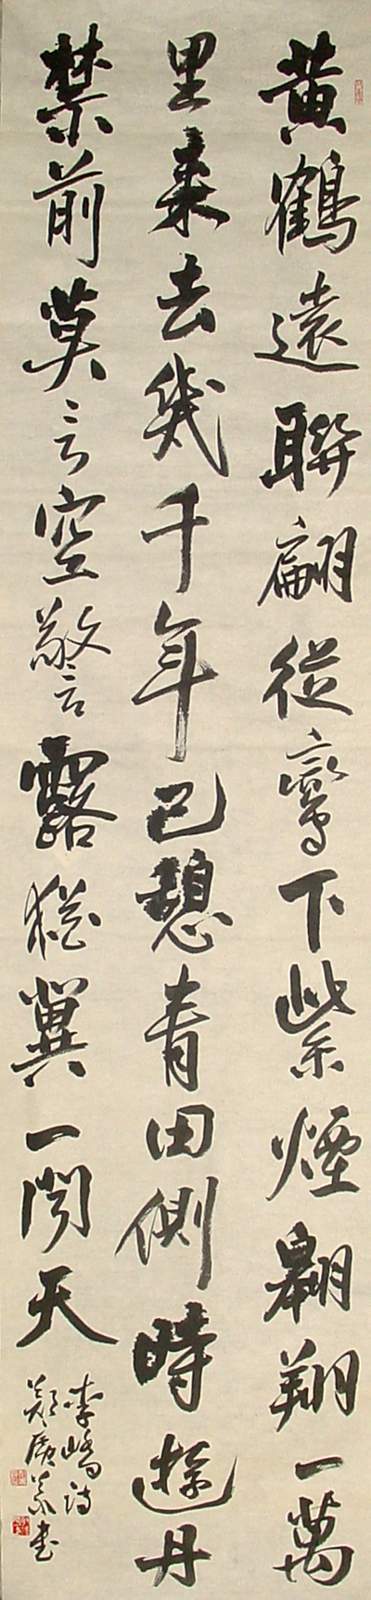 黃鶴遠聯翩從鸞下紫煙翱翔一萬
里來去幾千年已憩青田側時遊丹
禁前莫言空警露猶冀一聞天
李嶠詩
鄭廣榮書